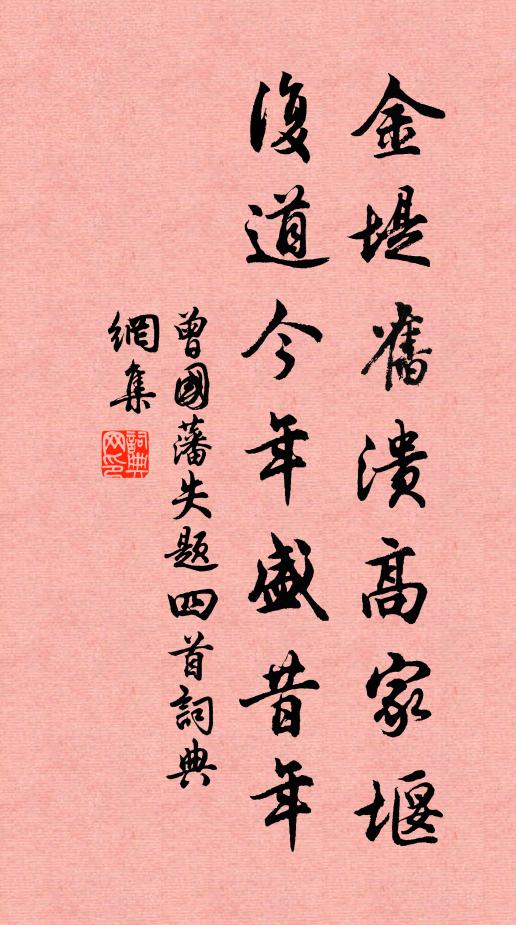 金堤舊潰高家堰
復道今年盛昔年
曾國藩失題四首詞典
網集
詞典網印